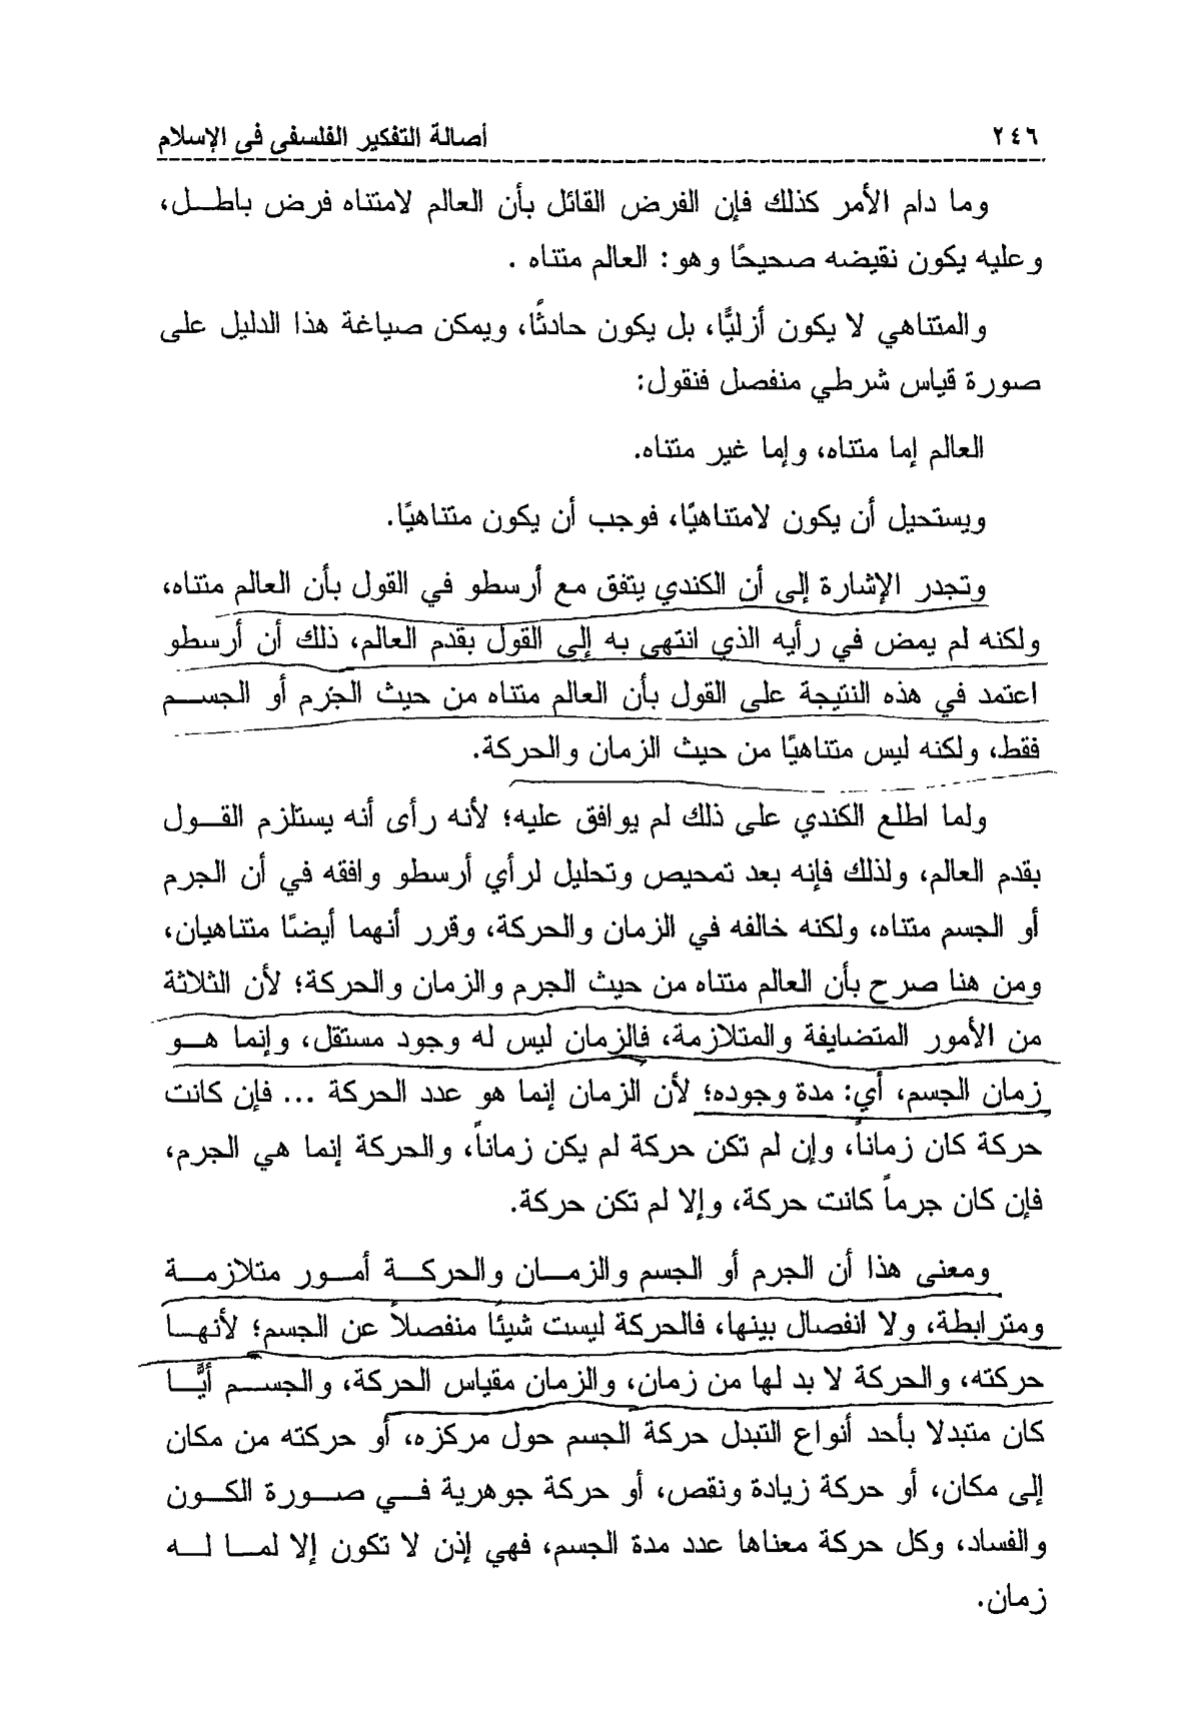 ٢٤٦ أصالة التفكير الفلسفى فى الإسلام
وما دام الأمر كذلك فإن الفرض القائل بأن العالم لامتناه فرض باطل،
وعليه يكون نقيضه صحيحًا وهو: العالم متناه .
والمتناهي لا يكون أزليًّا، بل يكون حادثًا، ويمكن صياغة هذا الدليل على
صورة قياس شرطي منفصل فنقول:
العالم إما متناه، وإما غير متناه.
ويستحيل أن يكون لامتناهيًا، فوجب أن يكون متناهيًا.
وتجدر الإشارة إلى أن الكندي يتفق مع أرسطو في القول بأن العالم متناه،
ولكنه لم يمض في رأيه الذي انتهى به إلى القول بقدم العالم، ذلك أن أرسطو
اعتمد في هذه النتيجة على القول بأن العالم متناه من حيث الجرم أو الجسم
فقط، ولكنه ليس متناهيًا من حيث الزمان والحركة.
ولما اطلع الكندي على ذلك لم يوافق عليه؛ لأنه رأى أنه يستلزم القول
بقدم العالم، ولذلك فإنه بعد تمحيص وتحليل لرأي أرسطو وافقه في أن الجرم
أو الجسم متناه، ولكنه خالفه في الزمان والحركة، وقرر أنهما أيضًا متناهيان،
ومن هنا صرح بأن العالم متناه من حيث الجرم والزمان والحركة؛ لأن الثلاثة
من الأمور المتضايفة والمتلازمة، فالزمان ليس له وجود مستقل، وإنما هو
زمان الجسم، أي: مدة وجوده؛ لأن الزمان إنما هو عدد الحركة ... فإن كانت
حركة كان زماناً، وإن لم تكن حركة لم يكن زماناً، والحركة إنما هي الجرم،
فإن كان جرماً كانت حركة، وإلا لم تكن حركة.
ومعنى هذا أن الجرم أو الجسم والزمان والحركة أمور متلازمة
ومترابطة، ولا انفصال بينها، فالحركة ليست شيئًا منفصلاً عن الجسم؛ لأنها
حركته، والحركة لا بد لها من زمان، والزمان مقياس الحركة، والجسم أيًّا
كان متبدلا بأحد أنواع التبدل حركة الجسم حول مركزه، أو حركته من مكان
إلى مكان، أو حركة زيادة ونقص، أو حركة جوهرية في صورة الكون
والفساد، وكل حركة معناها عدد مدة الجسم، فهي إذن لا تكون إلا لما له
زمان.